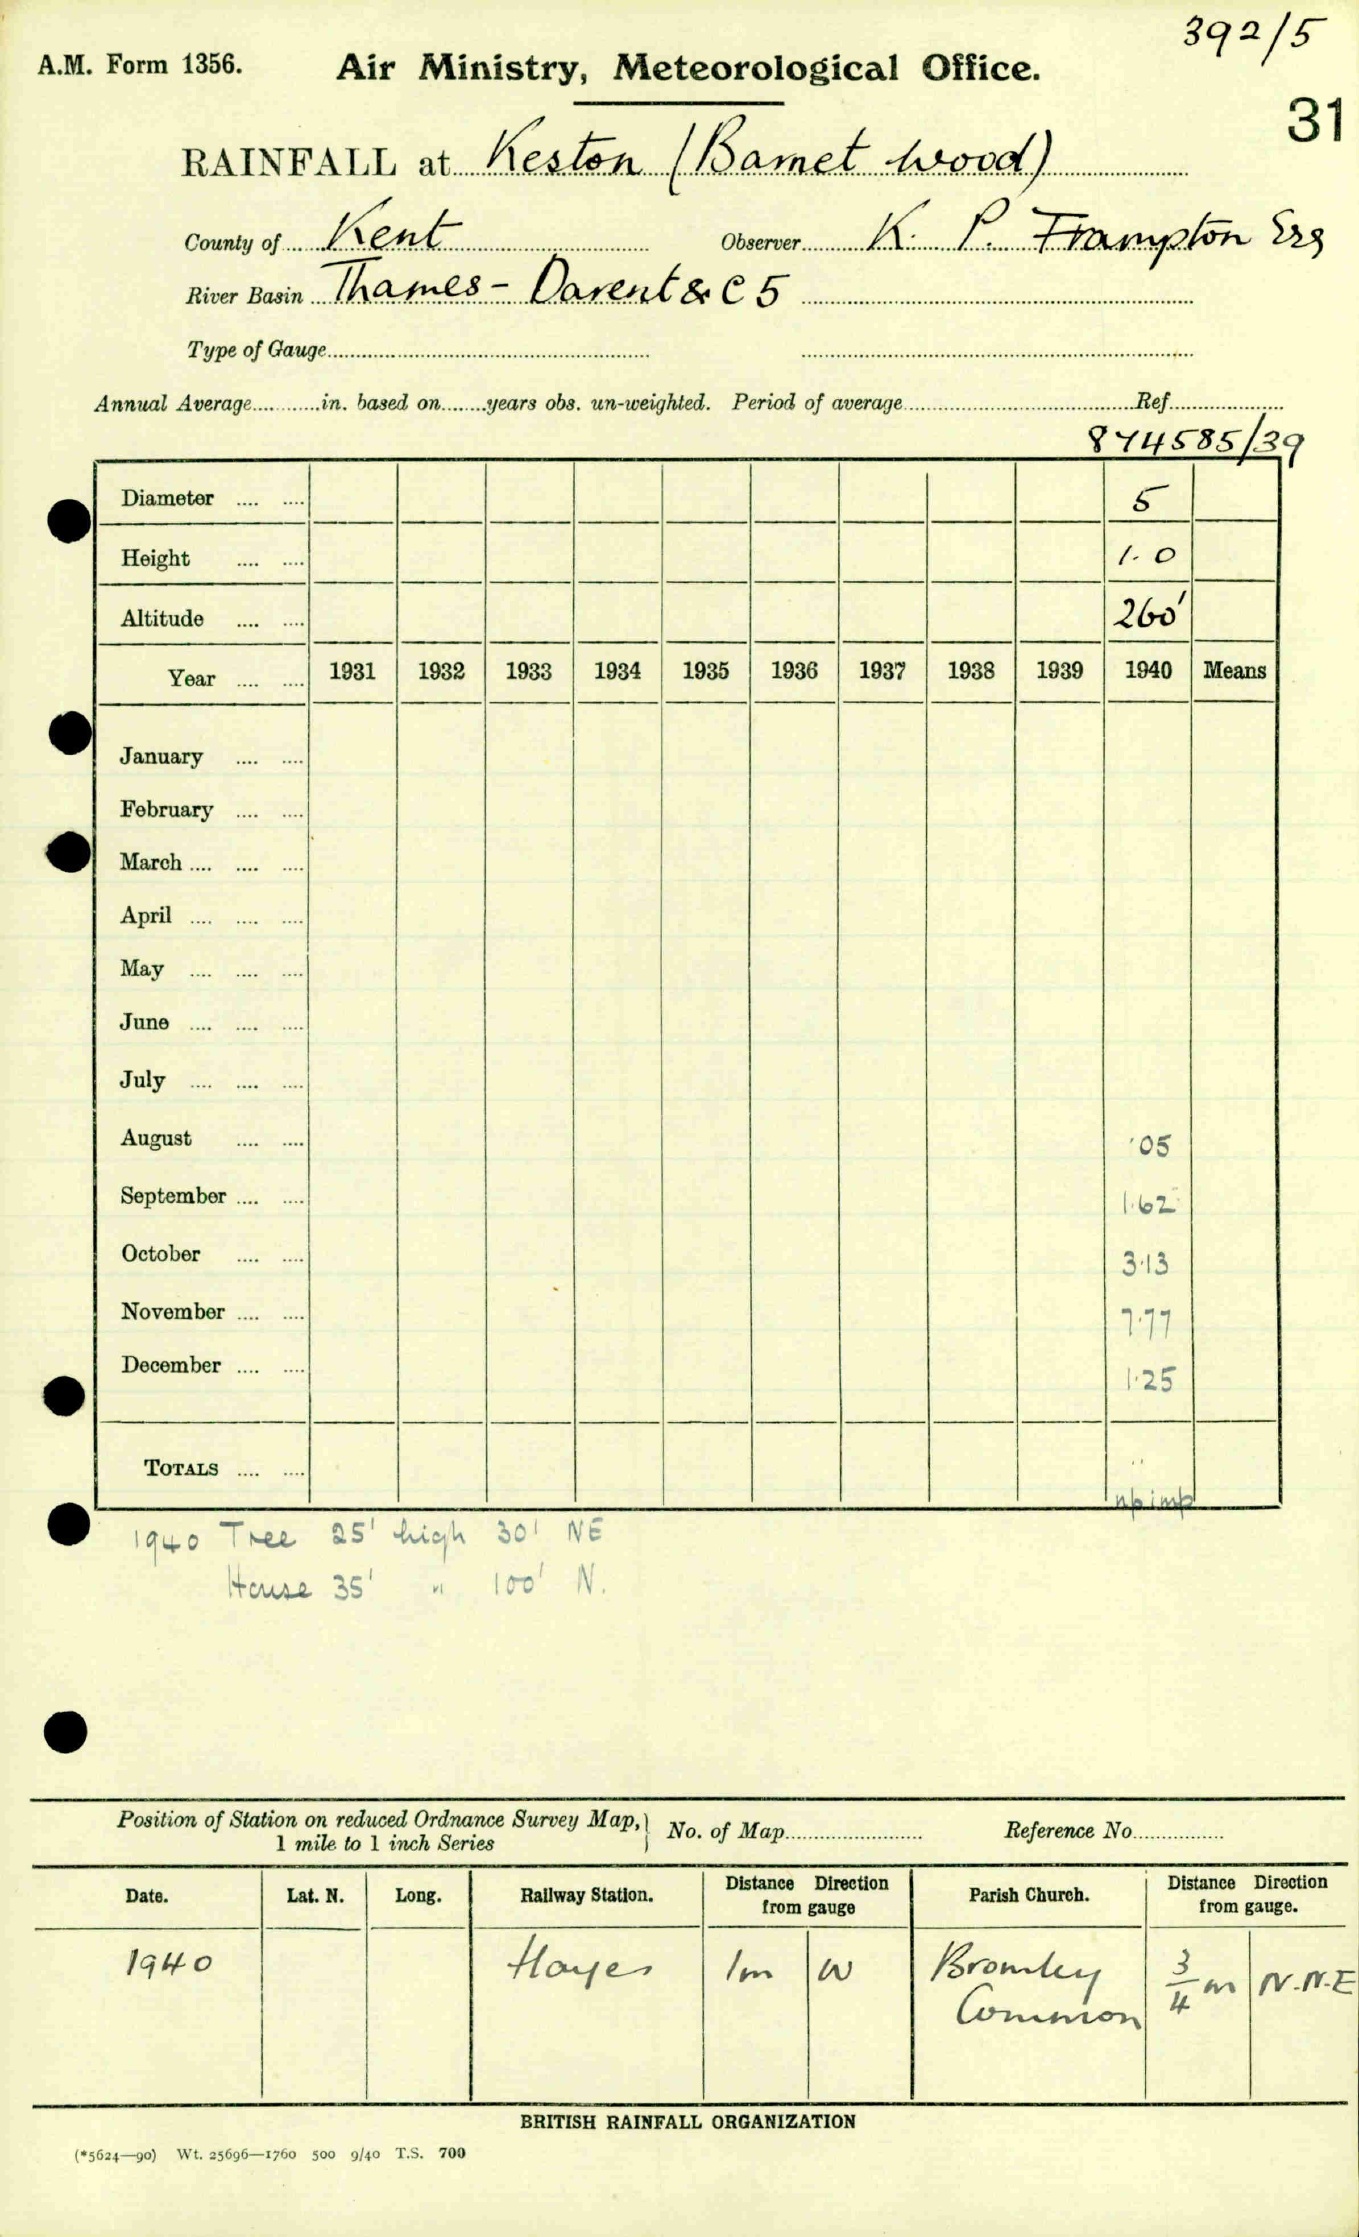 392/5
A.M. Form 1356. Air Ministry, Meteorological Office.
31
RAINFALL at Keston (Barnet Wood)
County of Kent Observer K. P. Frampton Esq
River Basin Thames - Darent &c 5
Type of Gauge
Annual Average in. based on years obs. un-weighted. Period of average Ref
874585/39
Diameter 5
Height 1.0
Altitude 260'
Year 1931 1932 1933 1934 1935 1936 1937 1938 1939 1940 Means
January
February
March
April
May
June
July
August ·05
September 1·62
October 3·13
November 7·77
December 1·25
TOTALS
1940 Tree 25' high 30' NE
House 35' " 100' N.
Position of Station on reduced Ordnance Survey Map, 1 mile to 1 inch Series No. of Map Reference No.
Date. Lat. N. Long. Railway Station. Distance Direction from gauge Parish Church. Distance Direction from gauge.
1940 Hayes 1m W Bromley Common 3/4 m N.N.E
BRITISH RAINFALL ORGANIZATION
(*5624—90) Wt. 25696—1760 500 9/40 T.S. 700